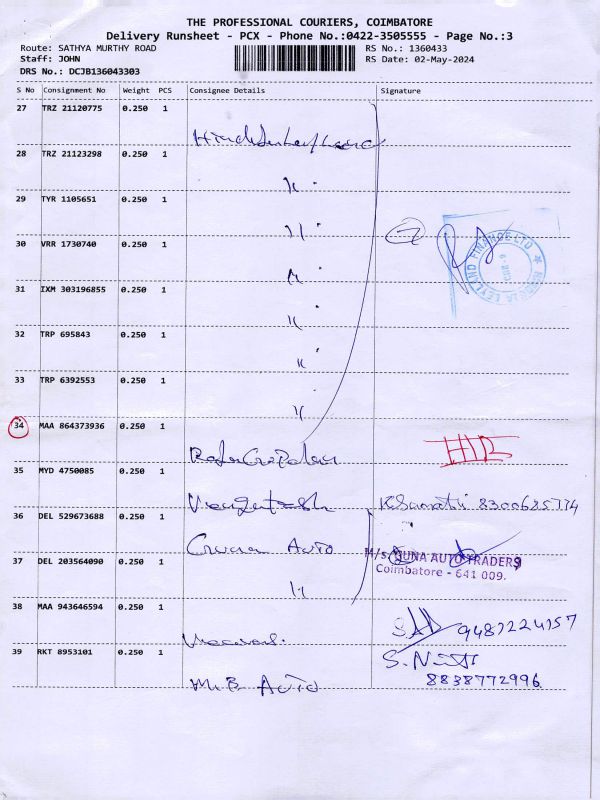 THE PROFESSIONAL COURIERS, COIMBATORE
Delivery Runsheet - PCX - Phone No.:0422-3505555 - Page No.:3
Route: SATHYA MURTHY ROAD RS No.: 1360433
Staff: JOHN RS Date: 02-May-2024
DRS No.: DCJB136043303
S No Consignment No Weight PCS Consignee Details Signature
27 TRZ 21120775 0.250 1
28 TRZ 21123298 0.250 1
29 TYR 1105651 0.250 1
30 VRR 1730740 0.250 1
7
LEYLAND FINANCE LTD
31 IXM 303196855 0.250 1
32 TRP 695843 0.250 1
33 TRP 6392553 0.250 1
34 MAA 864373936 0.250 1
35 MYD 4750085 0.250 1
Vengatesh 8300685774
36 DEL 529673688 0.250 1
Guna Auto
37 DEL 203564090 0.250 1
M/s. GUNA AUTO TRADERS
Coimbatore - 641 009.
38 MAA 943646594 0.250 1
9487224157
39 RKT 8953101 0.250 1
M.B Auto 8838772996